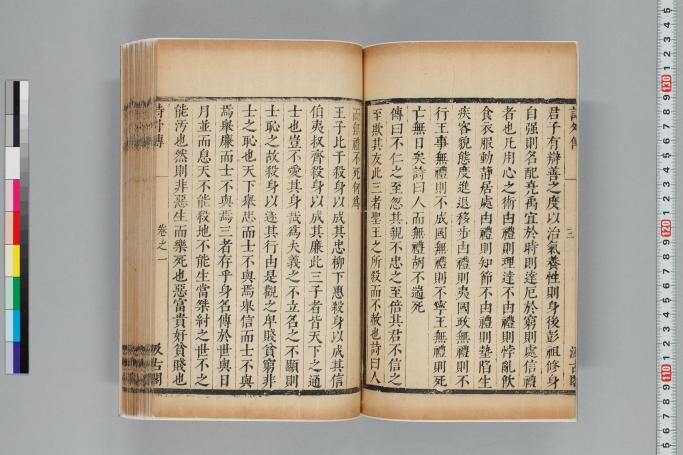 詩外傳
三
汲古閣
君子有辯善之度以治氣養性則身後彭祖修身
自强則名配堯禹宜於時則達厄於窮則處信禮
者也凡用心之術由禮則理達不由禮則悖亂飲
食衣服動靜居處由禮則知節不由禮則墊陷生
疾容貌態度進退移步由禮則夷國政無禮則不
行王事無禮則不成國無禮則不寧王無禮則死
亡無日矣詩曰人而無禮胡不遄死
傳曰不仁之至忽其親不忠之至倍其君不信之
至欺其友此三者聖王之所殺而不赦也詩曰人
而無禮不死何爲
王子比干殺身以成其忠柳下惠殺身以成其信
伯夷叔齊殺身以成其廉此三子者皆天下之通
士也豈不愛其身哉爲夫義之不立名之不顯則
士恥之故殺身以遂其行由是觀之卑賤貧窮非
士之恥也天下舉忠而士不與焉舉信而士不與
焉舉廉而士不與焉三者存乎身名傳於世與日
月並而息天不能殺地不能生當桀紂之世不之
能汚也然則非惡生而樂死也惡富貴好貧賤也
詩外傳
卷之一
汲古閣